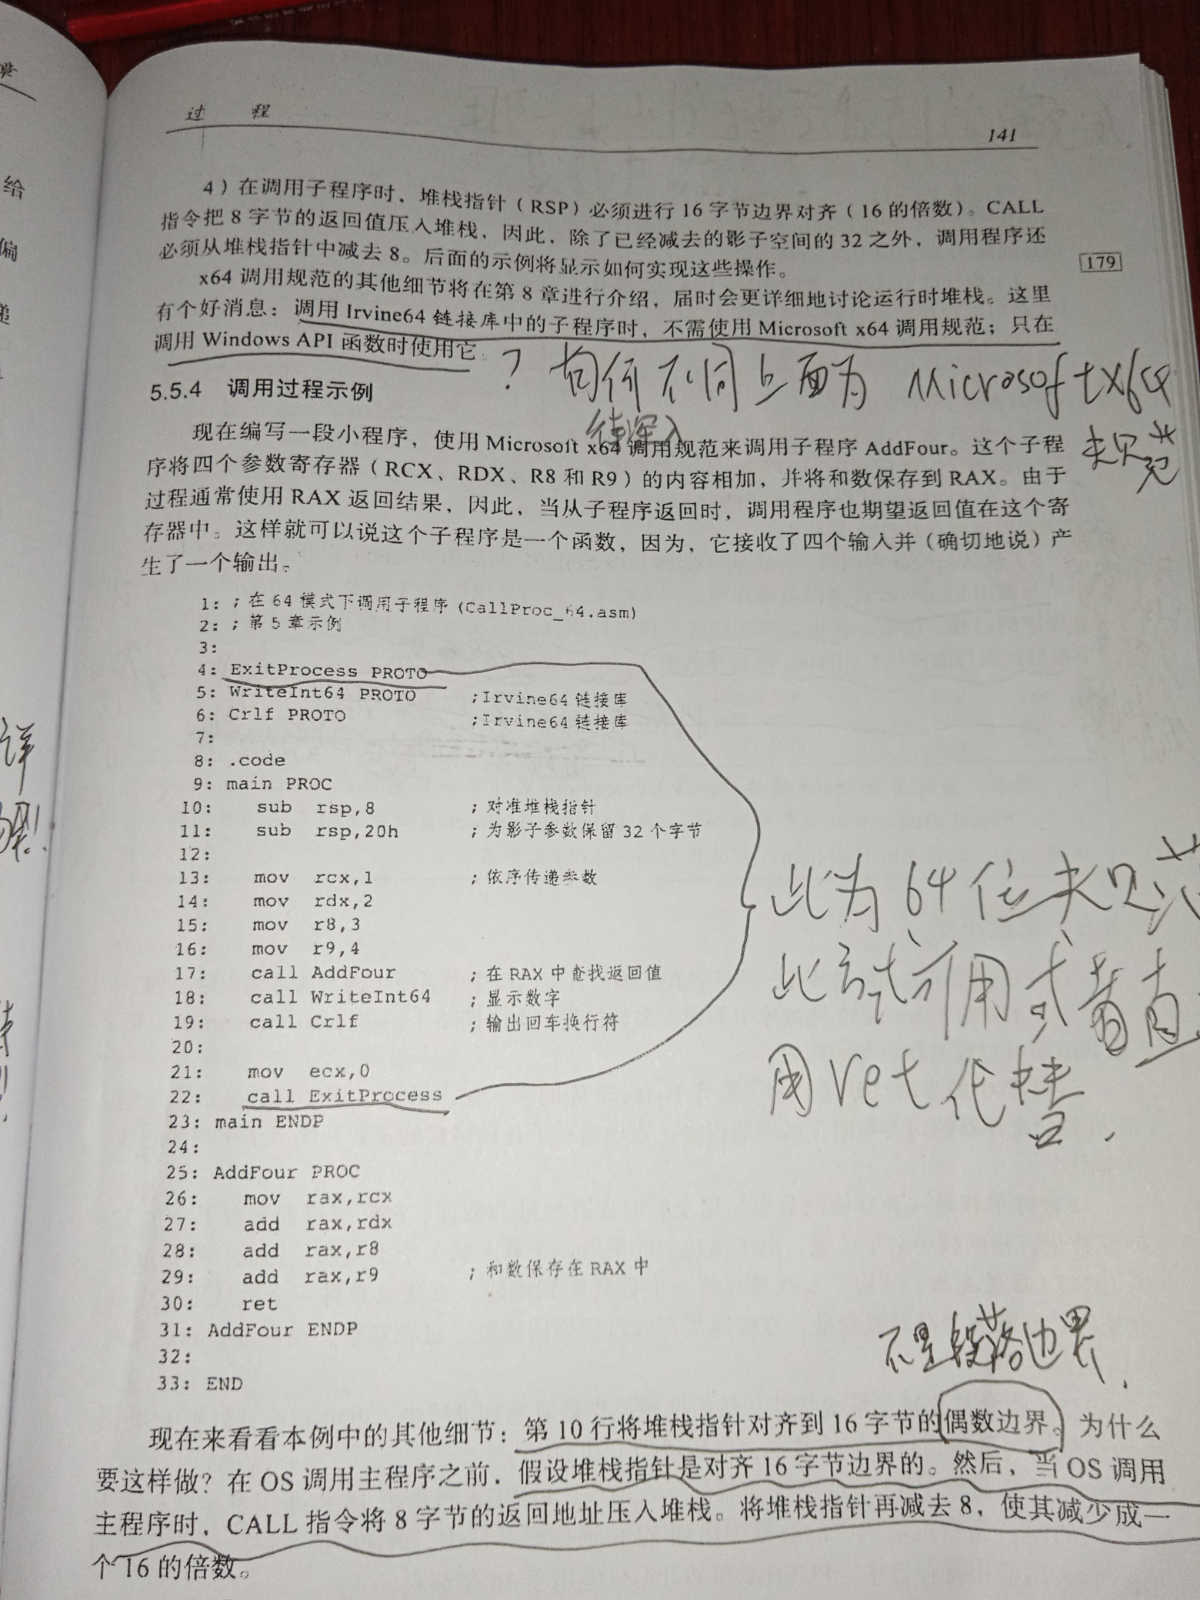 过 程
141
4）在调用子程序时，堆栈指针（RSP）必须进行 16 字节边界对齐（16 的倍数）。CALL
指令把 8 字节的返回值压入堆栈，因此，除了已经减去的影子空间的 32 之外，调用程序还
必须从堆栈指针中减去 8。后面的示例将显示如何实现这些操作。
179
x64 调用规范的其他细节将在第 8 章进行介绍，届时会更详细地讨论运行时堆栈。这里
有个好消息：调用 Irvine64 链接库中的子程序时，不需使用 Microsoft x64 调用规范；只在
调用 Windows API 函数时使用它。
？ 有何不同上面为 Microsoft x64
规范
待深入
5.5.4 调用过程示例
现在编写一段小程序，使用 Microsoft x64 调用规范来调用子程序 AddFour。这个子程
序将四个参数寄存器（RCX、RDX、R8 和 R9）的内容相加，并将和数保存到 RAX。由于
过程通常使用 RAX 返回结果，因此，当从子程序返回时，调用程序也期望返回值在这个寄
存器中。这样就可以说这个子程序是一个函数，因为，它接收了四个输入并（确切地说）产
生了一个输出。
1: ; 在 64 模式下调用子程序 (CallProc_64.asm)
2: ; 第 5 章示例
3:
4: ExitProcess PROTO
5: WriteInt64 PROTO ;Irvine64 链接库
6: Crlf PROTO ;Irvine64 链接库
7:
8: .code
9: main PROC
10: sub rsp,8 ; 对准堆栈指针
11: sub rsp,20h ; 为影子参数保留 32 个字节
12:
13: mov rcx,1 ; 依序传递参数
14: mov rdx,2
15: mov r8,3
16: mov r9,4
17: call AddFour ; 在 RAX 中查找返回值
18: call WriteInt64 ; 显示数字
19: call Crlf ; 输出回车换行符
20:
21: mov ecx,0
22: call ExitProcess
23: main ENDP
24:
25: AddFour PROC
26: mov rax,rcx
27: add rax,rdx
28: add rax,r8
29: add rax,r9 ; 和数保存在 RAX 中
30: ret
31: AddFour ENDP
32:
33: END
此为 64 位规范
用 ret 代替.
不是段落边界.
现在来看看本例中的其他细节：第 10 行将堆栈指针对齐到 16 字节的偶数边界。为什么
要这样做？在 OS 调用主程序之前，假设堆栈指针是对齐 16 字节边界的。然后，当 OS 调用
主程序时，CALL 指令将 8 字节的返回地址压入堆栈。将堆栈指针再减去 8，使其减少成一
个 16 的倍数。